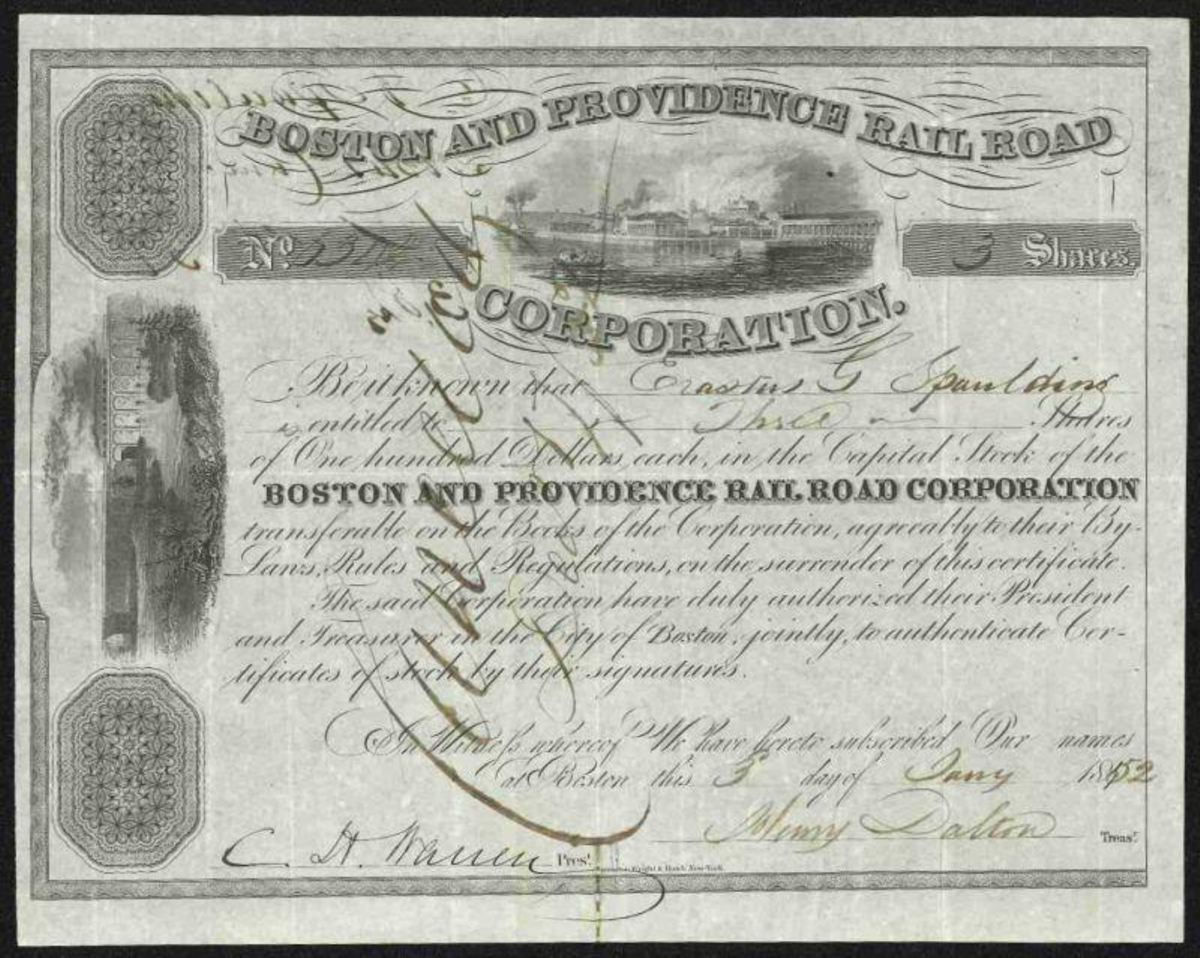 BOSTON AND PROVIDENCE RAIL ROAD
No.
3 Shares.
CORPORATION.
Be it known that Erastus G Spaulding
is entitled to Three Shares
of One hundred Dollars each, in the Capital Stock of the
BOSTON AND PROVIDENCE RAIL ROAD CORPORATION
transferable on the Books of the Corporation, agreeably to their By-
Laws, Rules and Regulations, on the surrender of this certificate.
The said Corporation have duly authorized their President
and Treasurer in the City of Boston, jointly, to authenticate Cer-
tificates of stock by their signatures.
In Witness whereof We have hereto subscribed Our names
at Boston this 5 day of Jany 1852
Henry Dalton Treasr.
C. H. Warren Prest.
Cancelled